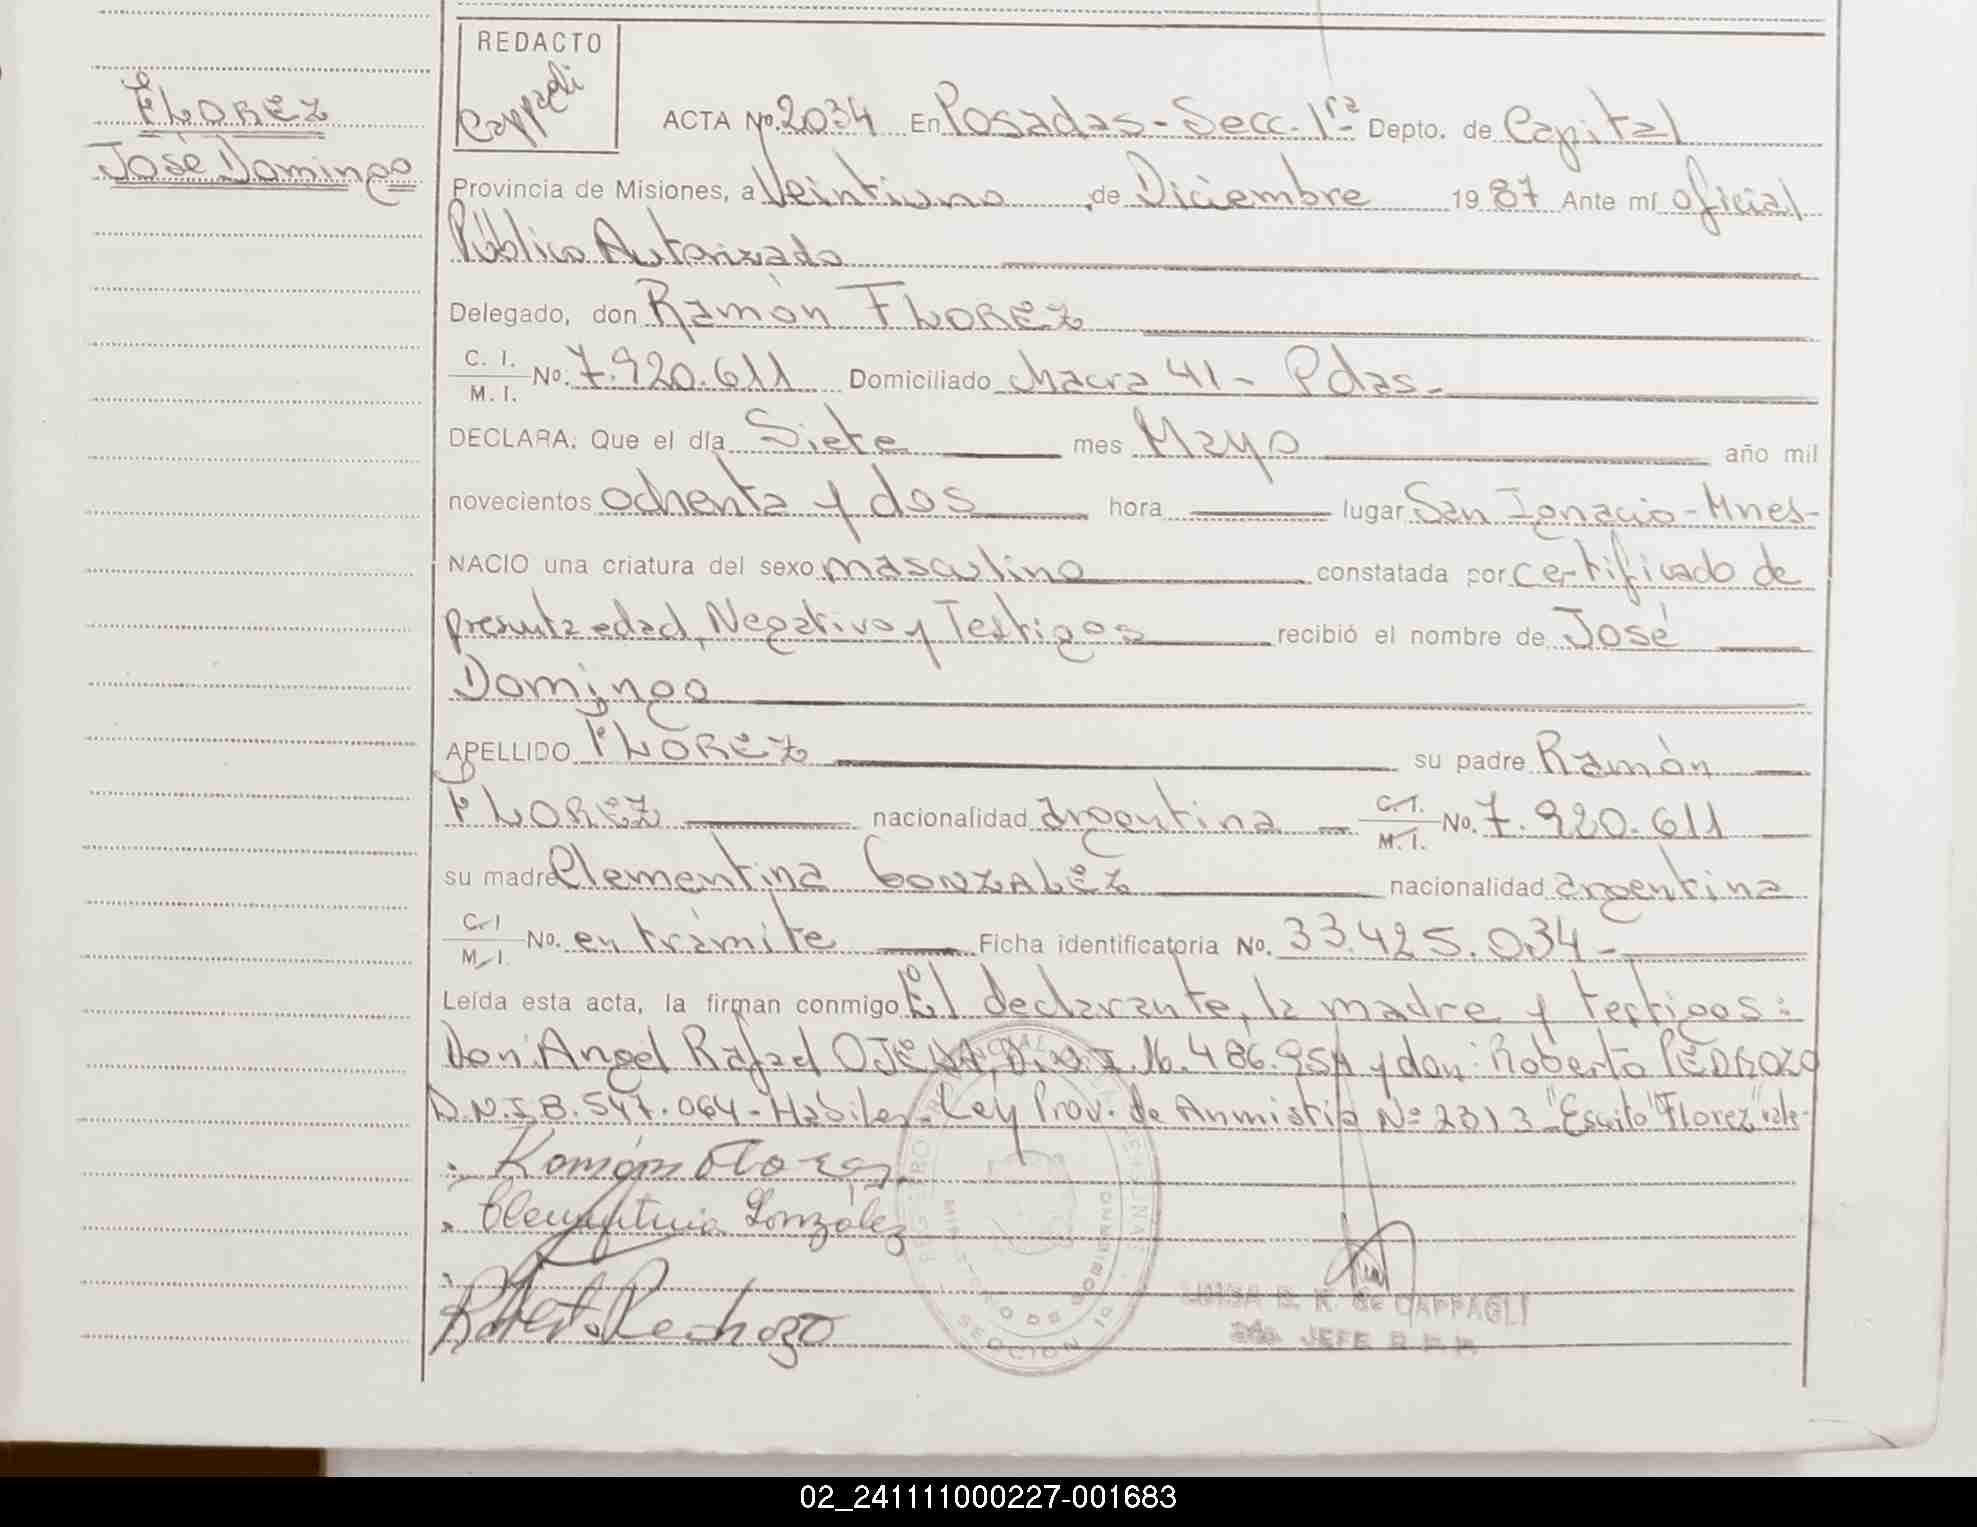 FLOREZ
José Domingo
REDACTO
Cappagli
ACTA Nº. 2034 En Posadas - Secc. 1ra Depto. de Capital
Provincia de Misiones, a Veintiuno de Diciembre 1987 Ante mí oficial
Público Autorizado
Delegado, don Ramón FLOREZ
C. I. / M. I. Nº. 7.920.611 Domiciliado chacra 41 - Pdas.-
DECLARA: Que el día Siete mes Mayo año mil
novecientos ochenta y dos hora lugar San Ignacio - Mnes-
NACIO una criatura del sexo masculino constatada por certificado de
presunta edad, Negativo y Testigos recibió el nombre de José
Domingo
APELLIDO FLOREZ su padre Ramón
FLOREZ nacionalidad argentina C. I. / M. I. Nº. 7.920.611
su madre Clementina GONZALEZ nacionalidad argentina
C. I. / M. I. Nº. en trámite Ficha identificatoria Nº. 33.425.034-
Leída esta acta, la firman conmigo El declarante, la madre y testigos:
Don: Angel Rafael OJEDA, D.N.I. 16.486.954 y don: Roberto PEDROZO
D.N.I. 8.547.064 - Habiles - Ley Prov. de Anmistia Nº 2313 - "Escrito" "Florez" vale-
Ramón Florez
Clementina González
Roberto Pedrozo
SECCION 1a
MINISTERIO DE GOBIERNO
LUISA E. K. de CAPPAGLI
2da. JEFE
02_241111000227-001683